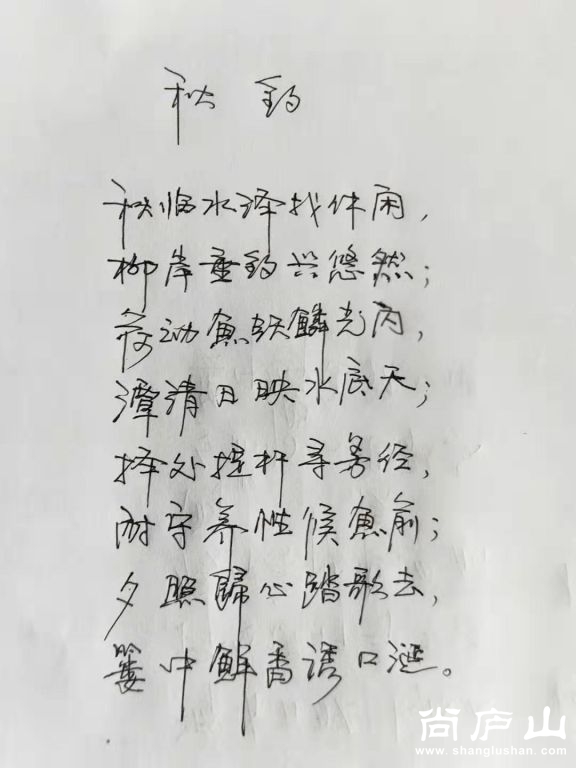 秋 钓
秋临水泽找休闲，
柳岸垂钓兴悠然；
荷动鱼跃鳞光闪，
潭清日映水底天；
择处提杆寻务经，
耐守养性候鱼前；
夕照歸心踏歌去，
篓中鲜香诱口涎。
尚庐山
www.shanglushan.com